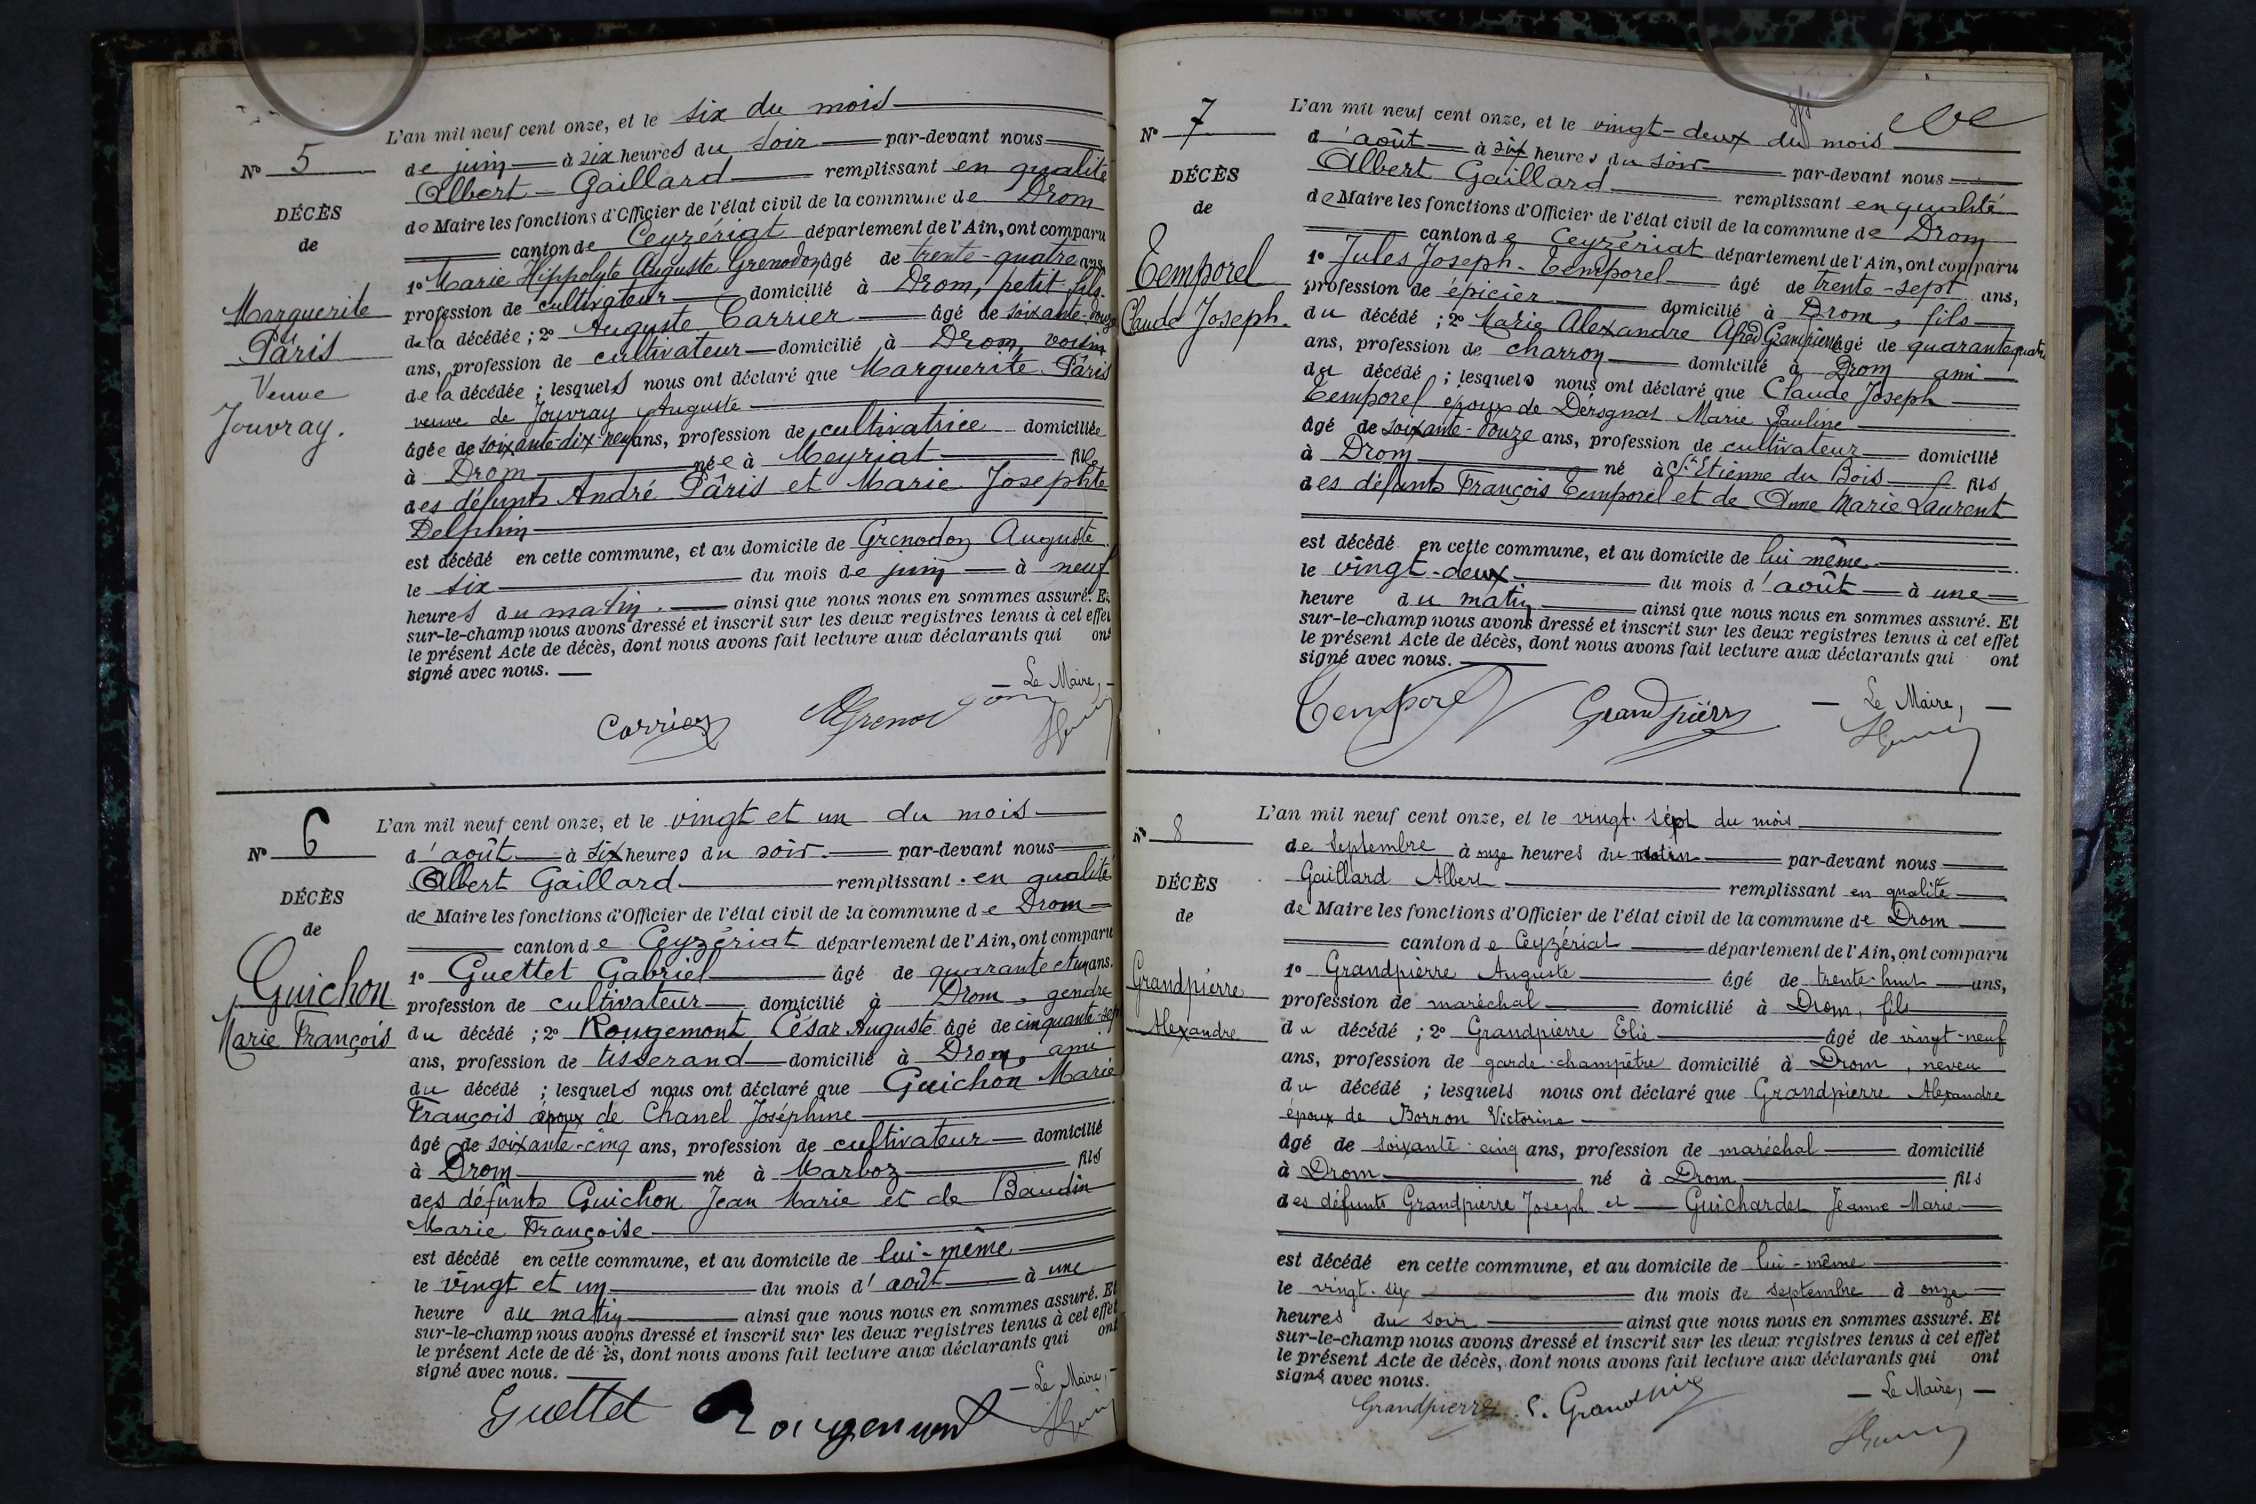 L'an mil neuf cent onze, et le six du mois
de juin à six heures du soir par-devant nous
Albert Gaillard remplissant en qualité
de Maire les fonctions d'Officier de l'état civil de la commune de Drom
canton de Ceyzériat département de l'Ain, ont comparu
1º Marie Hippolyte Auguste Grenodon âgé de trente-quatre ans,
profession de cultivateur domicilié à Drom, petit fils
de la décédée ; 2º Auguste Carrier âgé de soixante-douze
ans, profession de cultivateur domicilié à Drom, voisin
de la décédée ; lesquels nous ont déclaré que Marguerite Pâris
veuve de Jouvray Auguste
âgée de soixante-dix-neuf ans, profession de cultivatrice domiciliée
à Drom née à Meyriat fille
des défunts André Pâris et Marie Josephte
Delphin
est décédé en cette commune, et au domicile de Grenodon Auguste
le six du mois de juin à neuf
heures du matin. ainsi que nous nous en sommes assuré. Et
sur-le-champ nous avons dressé et inscrit sur les deux registres tenus à cet effet
le présent Acte de décès, dont nous avons fait lecture aux déclarants qui ont
signé avec nous.
Le Maire,
Carrier
Nº 5
DÉCÈS
de
Marguerite
Pâris
Veuve
Jouvray.
L'an mil neuf cent onze, et le vingt et un du mois
d'août à six heures du soir. par-devant nous
Albert Gaillard remplissant en qualité
de Maire les fonctions d'Officier de l'état civil de la commune de Drom
canton de Ceyzériat département de l'Ain, ont comparu
1º Guettet Gabriel âgé de quarante et un ans.
profession de cultivateur domicilié à Drom, gendre
du décédé ; 2º Rougemont César Auguste âgé de cinquante-sept
ans, profession de tisserand domicilié à Drom, ami
du décédé ; lesquels nous ont déclaré que Guichon Marie
François époux de Chanel Joséphine
âgé de soixante-cinq ans, profession de cultivateur domicilié
à Drom né à Marboz fils
des défunts Guichon Jean Marie et de Baudin
Marie Françoise
est décédé en cette commune, et au domicile de lui-même
le vingt et un du mois d'août à une
heure du matin ainsi que nous nous en sommes assuré. Et
sur-le-champ nous avons dressé et inscrit sur les deux registres tenus à cet effet
le présent Acte de décès, dont nous avons fait lecture aux déclarants qui ont
signé avec nous.
Le Maire,
Guettet Rougemont
Nº 6
DÉCÈS
de
Guichon
Marie François
L'an mil neuf cent onze, et le vingt-deux du mois
d'août à six heures du soir par-devant nous
Albert Gaillard remplissant en qualité
de Maire les fonctions d'Officier de l'état civil de la commune de Drom
canton de Ceyzériat département de l'Ain, ont comparu
1º Jules Joseph Temporel âgé de trente-sept ans,
profession de épicier domicilié à Drom, fils
du décédé ; 2º Marie Alexandre Alfred Grandpierre âgé de quarante quatre
ans, profession de charron domicilié à Drom ami
du décédé ; lesquels nous ont déclaré que Claude Joseph
Temporel époux de Dérognat Marie Pauline
âgé de soixante-douze ans, profession de cultivateur domicilié
à Drom né à St Etienne du Bois fils
des défunts François Temporel et de Anne Marie Laurent
est décédé en cette commune, et au domicile de lui même
le vingt-deux du mois d'août à une
heure du matin ainsi que nous nous en sommes assuré. Et
sur-le-champ nous avons dressé et inscrit sur les deux registres tenus à cet effet
le présent Acte de décès, dont nous avons fait lecture aux déclarants qui ont
signé avec nous.
Le Maire,
Temporel Grandpierre
Nº 7
DÉCÈS
de
Temporel
Claude Joseph.
L'an mil neuf cent onze, et le vingt-sept du mois
de septembre à onze heures du matin par-devant nous
Gaillard Albert remplissant en qualité
de Maire les fonctions d'Officier de l'état civil de la commune de Drom
canton de Ceyzériat département de l'Ain, ont comparu
1º Grandpierre Auguste âgé de trente-huit ans,
profession de maréchal domicilié à Drom, fils
du décédé ; 2º Grandpierre Elie âgé de vingt-neuf
ans, profession de garde-champêtre domicilié à Drom, neveu
du décédé ; lesquels nous ont déclaré que Grandpierre Alexandre
époux de Borron Victorine
âgé de soixante-cinq ans, profession de maréchal domicilié
à Drom né à Drom fils
des défunts Grandpierre Joseph et Guichardet Jeanne Marie
est décédé en cette commune, et au domicile de lui-même
le vingt-six du mois de septembre à onze
heures du soir ainsi que nous nous en sommes assuré. Et
sur-le-champ nous avons dressé et inscrit sur les deux registres tenus à cet effet
le présent Acte de décès, dont nous avons fait lecture aux déclarants qui ont
signé avec nous.
Le Maire,
Grandpierre
Nº 8
DÉCÈS
de
Grandpierre
Alexandre